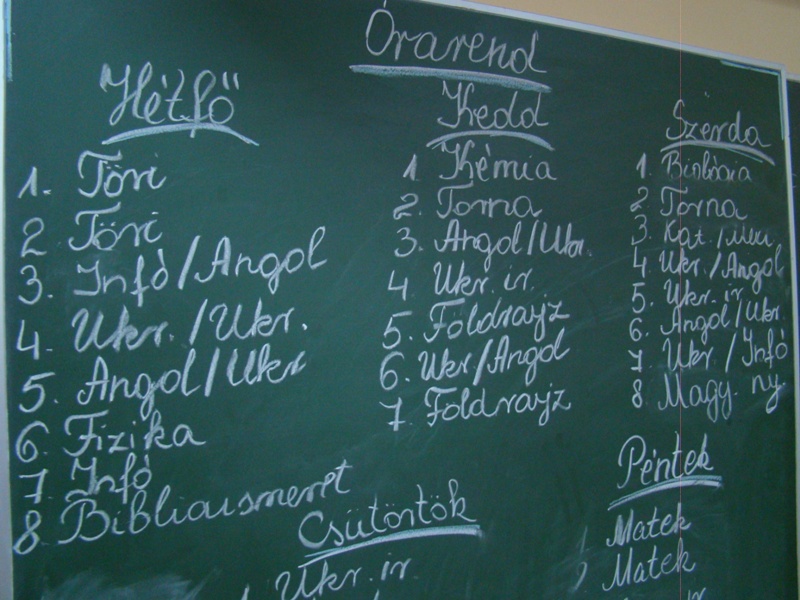 Órarend
Hétfő
1. Töri
2 Töri
3. Infó/Angol
4. Ukr./Ukr.
5. Angol/Ukr
6. Fizika
7 Infó
8. Bibliaismeret
Kedd
1 Kémia
2. Torna
3. Angol/Ukr.
4 Ukr. ir.
5. Földrajz
6. Ukr/Angol
7 Földrajz
Szerda
1. Biológia
2 Torna
3 Kat./
4 Ukr./Angol
5. Ukr. ir.
6. Angol/Ukr.
7 Ukr/Infó
8 Magy. ny.
Csütörtök
Ukr. ir.
Péntek
Matek
2 Matek